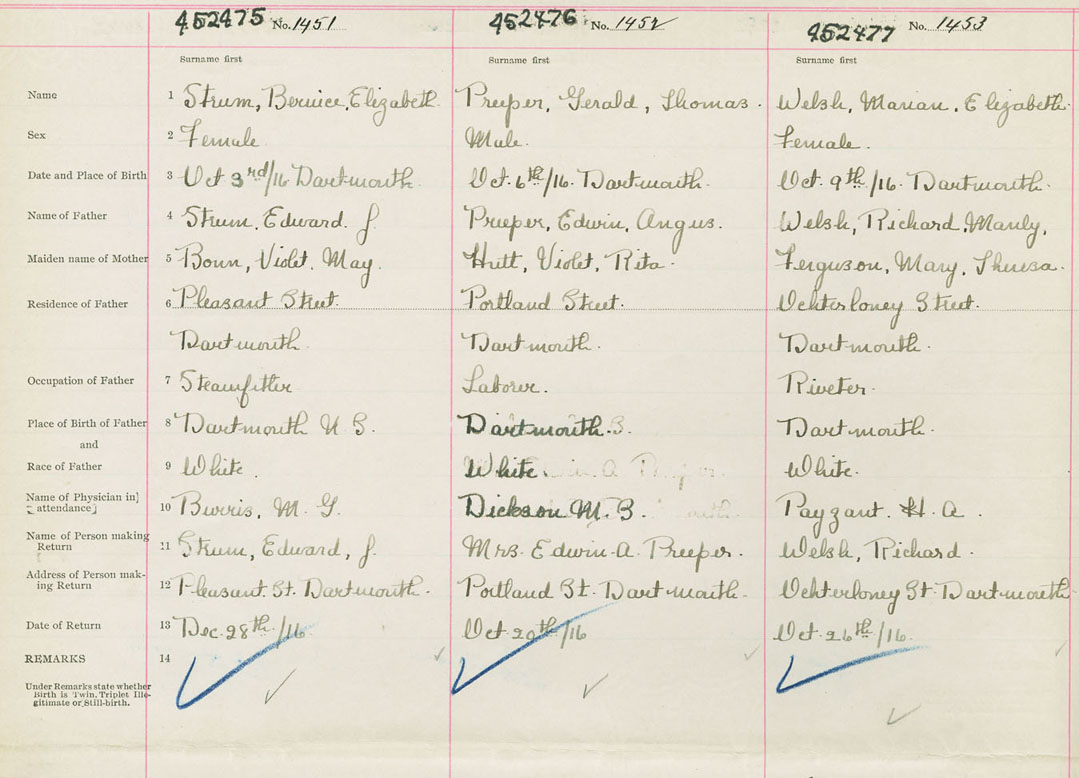 452475 No. 1451 452476 No. 1452 452477 No. 1453
Surname first Surname first Surname first
Name 1 Strum, Bernice, Elizabeth. Preeper, Gerald, Thomas. Welsh, Marian, Elizabeth.
Sex 2 Female. Male. Female.
Date and Place of Birth 3 Oct 3rd/16 Dartmouth. Oct. 6th/16. Dartmouth. Oct. 9th/16. Dartmouth.
Name of Father 4 Strum, Edward. J Preeper, Edwin, Angus. Welsh, Richard, Manly,
Maiden name of Mother 5 Bonn, Violet, May. Hutt, Violet, Rita. Ferguson, Mary, Theresa.
Residence of Father 6 Pleasant Street. Portland Street. Ochterloney Street.
Dartmouth. Dartmouth. Dartmouth.
Occupation of Father 7 Steamfitter Laborer. Riveter.
Place of Birth of Father 8 Dartmouth N.S. Dartmouth. Dartmouth.
and
Race of Father 9 White. White. White.
Name of Physician in
attendance 10 Burris, M. G. Dickson M. B. Payzant. H. A.
Name of Person making
Return 11 Strum, Edward, J. Mrs. Edwin A. Preeper. Welsh, Richard.
Address of Person mak-
ing Return 12 Pleasant. St. Dartmouth. Portland St. Dartmouth. Ochterloney St. Dartmouth
Date of Return 13 Dec. 28th/16 Oct 20th/16 Oct. 26th/16.
REMARKS 14
Under Remarks state whether
Birth is Twin, Triplet Ille-
gitimate or Still-birth.